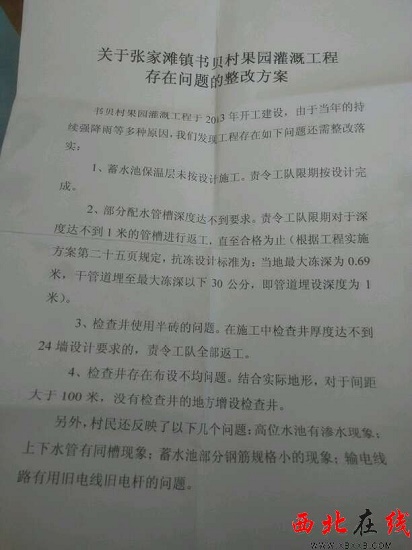 关于张家滩镇书贝村果园灌溉工程
存在问题的整改方案
书贝村果园灌溉工程于2013年开工建设，由于当年的持
续强降雨等多种原因，我们发现工程存在如下问题还需整改落
实：
1、蓄水池保温层未按设计施工。责令工队限期按设计完
成。
2、部分配水管槽深度达不到要求。责令工队限期对于深
度达不到1米的管槽进行返工，直至合格为止（根据工程实施
方案第二十五页规定，抗冻设计标准为：当地最大冻深为0.69
米，干管道埋至最大冻深以下30公分，即管道埋设深度为1
米）。
3、检查井使用半砖的问题。在施工中检查井厚度达不到
24墙设计要求的，责令工队全部返工。
4、检查井存在布设不均问题。结合实际地形，对于间距
大于100米，没有检查井的地方增设检查井。
另外，村民还反映了以下几个问题：高位水池有渗水现象；
上下水管有同槽现象；蓄水池部分钢筋规格小的现象；输电线
路有用旧电线旧电杆的问题。
西北在线